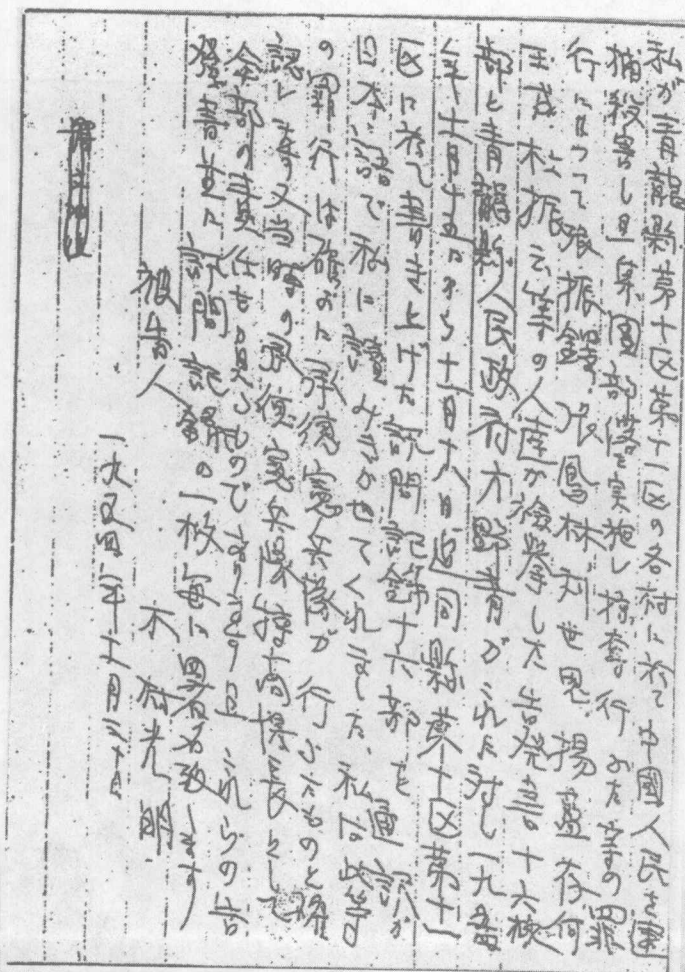 私が青龍縣第十区第十一区の各村に於て中國人民を逮
捕殺害し且集團部落を実施し掠奪行った等の罪
行によって張振鐸、張鳳林、刘世恩、楊蓋存、何
玉成、杜振云等の人達が検挙した告発書十六枚
部と青龍縣人民政府方野青がこれに対し一九五四
年十一月十五日から十一月十六日迄同縣第十区第十一
区に於て書き上げた訊問記錄十六部を通訳が
日本語で私に讀みきかせてくれました、私は此等
の罪行は確かに承德憲兵隊が行ったものと確
認し、且又当時の承德憲兵隊特高課長として
全部の責任を負ふものであります且これらの告
發書並に訊問記錄の一枚毎に署名致します
被告人 木村光明
一九五四年十一月